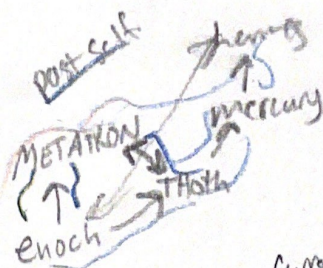 past self
thermes
mercury
METATRON
THoth
enoch